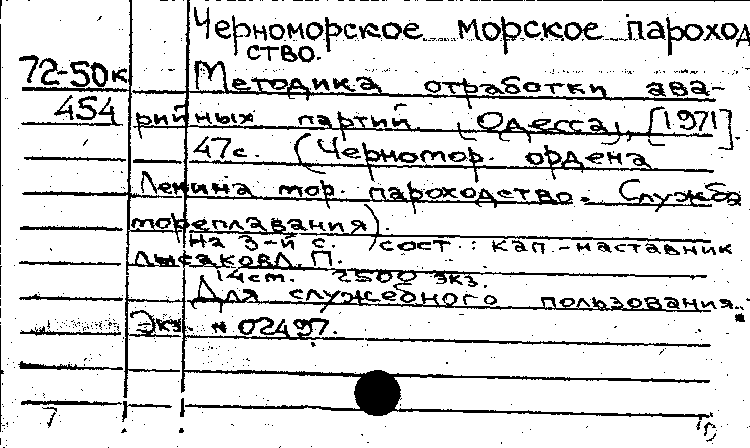 Черноморское морское пароход
ство.
72-50к Методика отработки ава-
454 рийных партий. [Одесса], [1971].
47с. (Черномор. ордена
Ленина мор. пароходство. Служба
мореплавания).
на 3-й с. сост.: кап.-наставник
Лысаков Л. П.
14 см. 2500 экз.
Для служебного пользования.
Экз. № 02497.
7